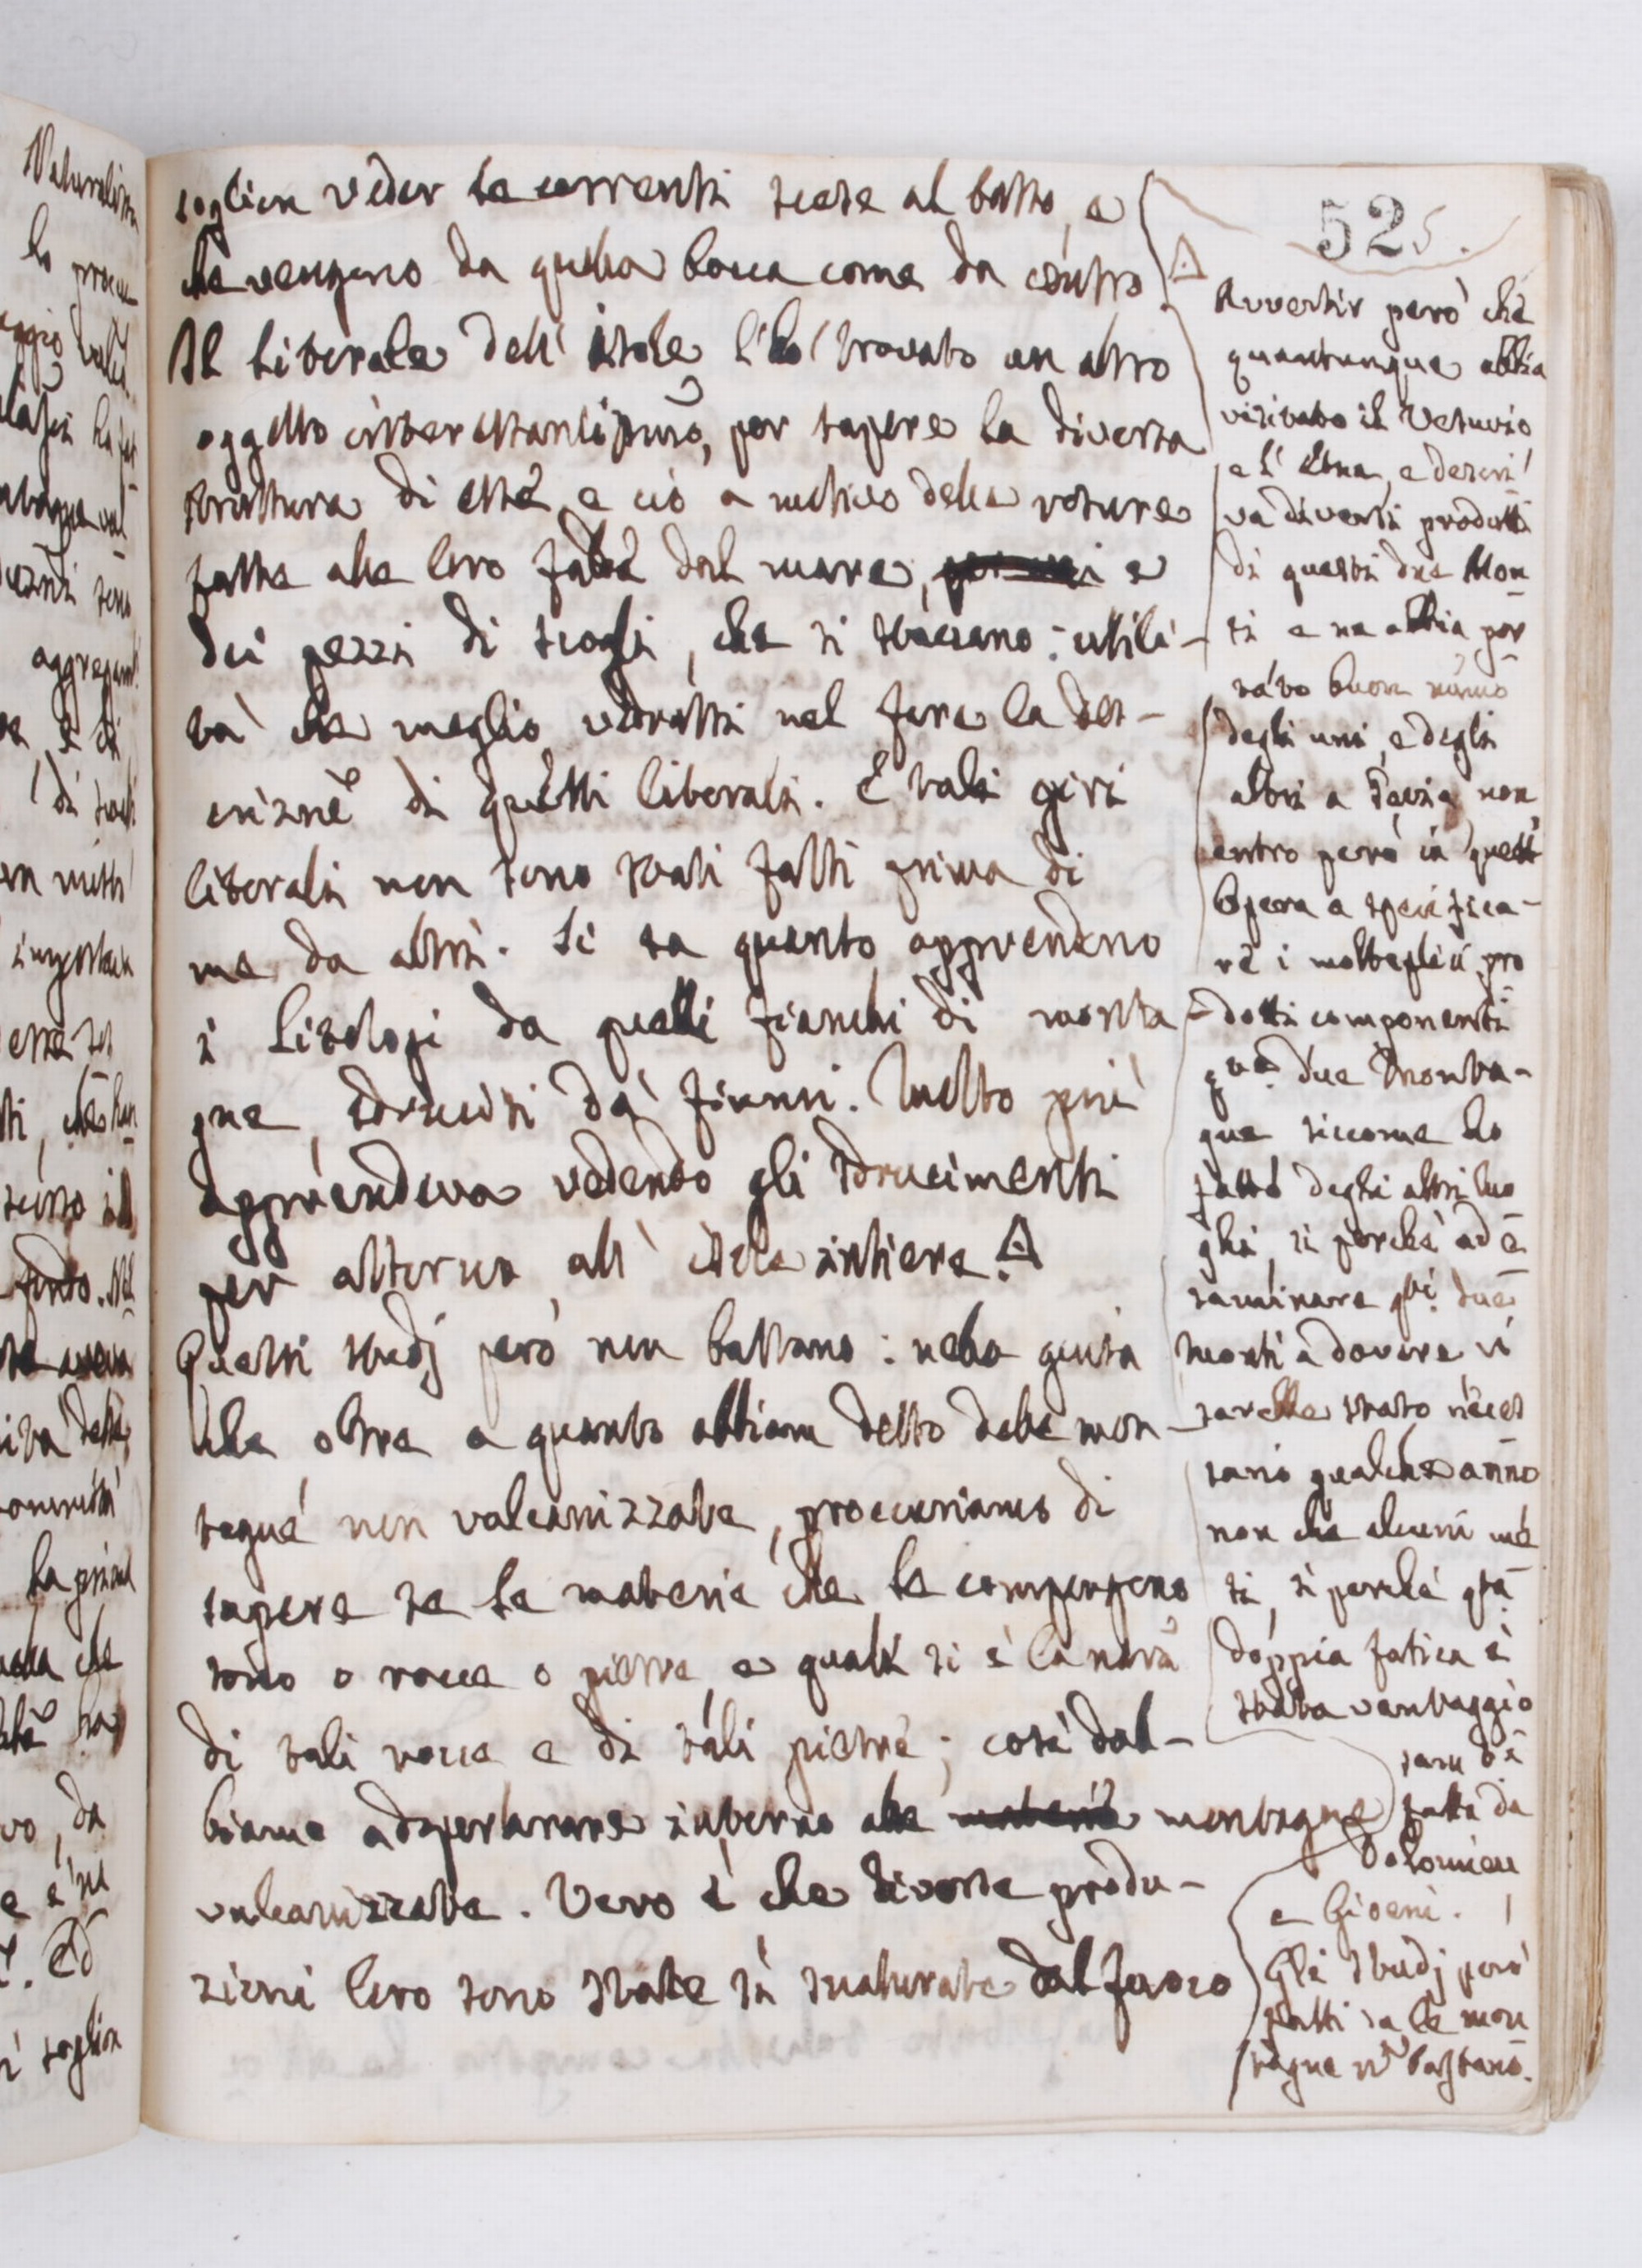 soglion veder le correnti scese al basso, e
che vengono da quella bocca come da centro.
Il Littorale dell' isole l'ho trovato un altro
oggetto interessantissimo, per sapere la diversa
struttura di esse, e ciò a motivo delle rotture
fatte alle loro falde dal mare, e
dei pezzi di scogli, che si staccano: utili-
tà che meglio vedrassi nel fare la des-
crizne di questi littorali. E tali giri
littorali non sono stati fatti prima di
me da altri. Si sa quanto apprendono
i Litologi da quelli fianchi di monta-
gne, sdruciti da' fiumi. Molto più
apprendeva vedendo gli sdrucimenti
per attorno all' isole intiere.
Questi studj però non bastano: nella guisa
che oltre a quanto abbiam detto delle mon-
tagne non vulcanizzate, proccuriamo di
sapere se le materie che le compongono
sono o rocce o pietre, e quale si è la nara
di tali rocce e di tali pietre; così dob-
biamo adoperarne intorno alle montagne
vulcanizzate. Vero è che diverse produ-
zioni loro sono state sì snaturate dal fuoco
525.
Avvertir però che
quantunque abbia
visitato il Vesuvio
e l' Etna, e descri
va diversi prodotti
di questi due Mon
ti e ne abbia por
tato buon numo
degli uni, e degli
altri a Pavia, non
entro però in quest'
Opera a specifica-
re i molteplici pro
dotti componenti
qe due Monta-
gne siccome ho
fatto degli altri luo
ghi, sì perchè ad e
saminare qi due
monti a dovere vi
sarebbe stato neces
sario qualche anno
non che alcuni me
si, sì perchè qta
doppia fatica è
stata vantaggio
sam te
fatta da
Dolomieu
e Gioeni.
Gli studj però
fatti su le mon
tagne n bastano.